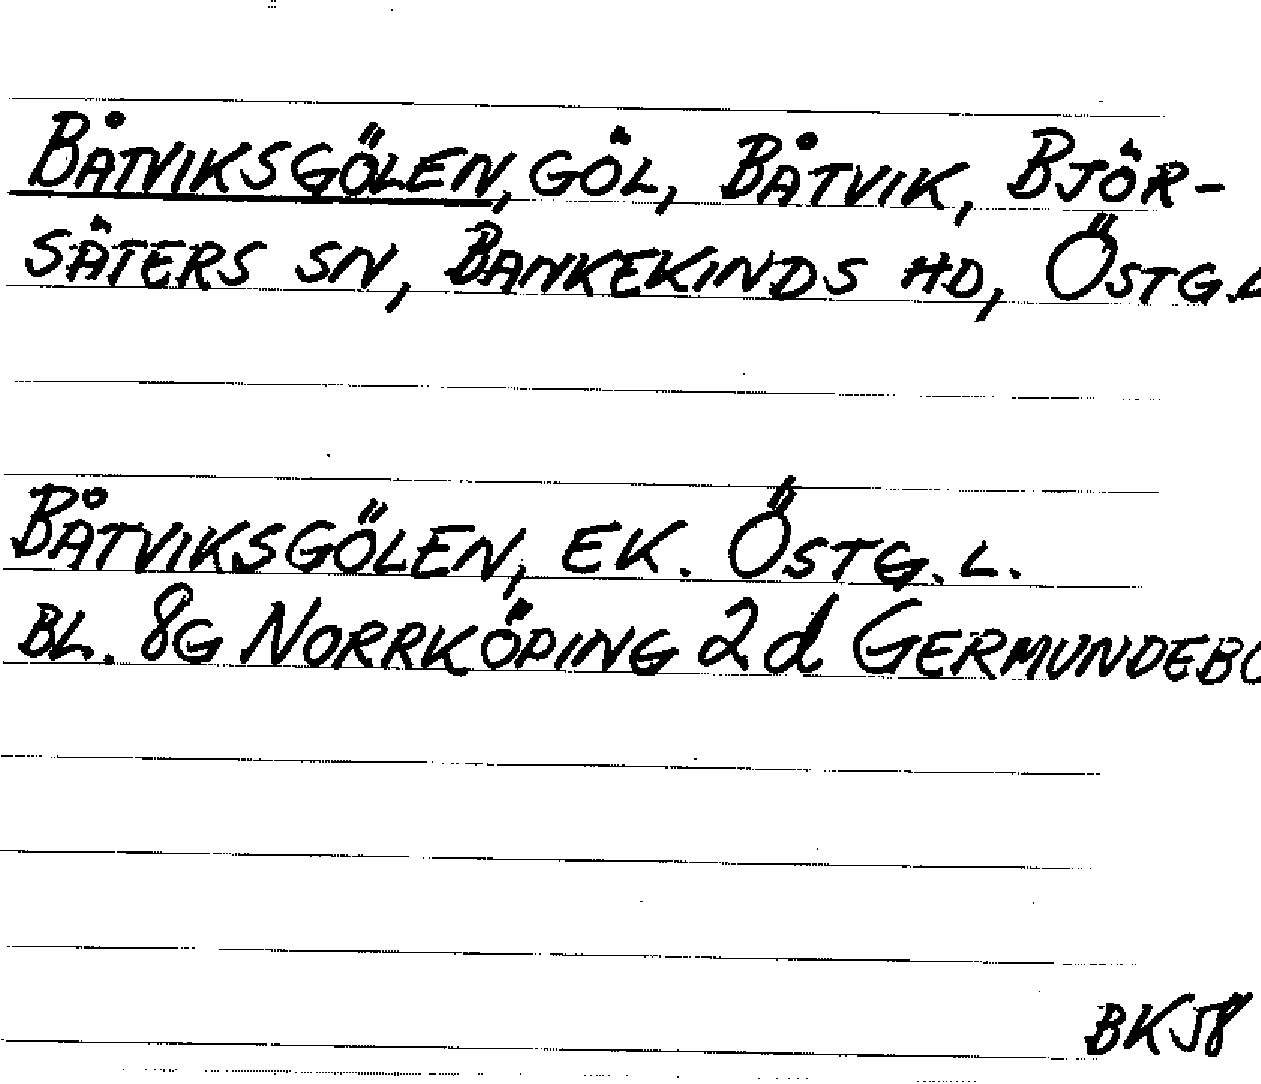 BÅTVIKSGÖLEN, GÖL, BÅTVIK, BJÖR-
SÄTERS SN, BANKEKINDS HD, ÖSTG.L
BÅTVIKSGÖLEN, EK. ÖSTG. L.
BL. 8G NORRKÖPING 2d GERMUNDEBO
BKJ8